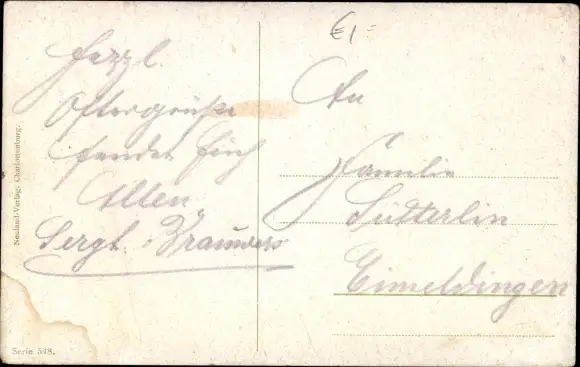 Herzl.
Ostergrüße
sendet Euch
Allen
Sergt.
An
Familie
Sütterlin
Eimeldingen
Neuland-Verlag, Charlottenburg.
Serie 548.